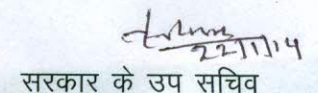 22/1/14
सरकार के उप सचिव